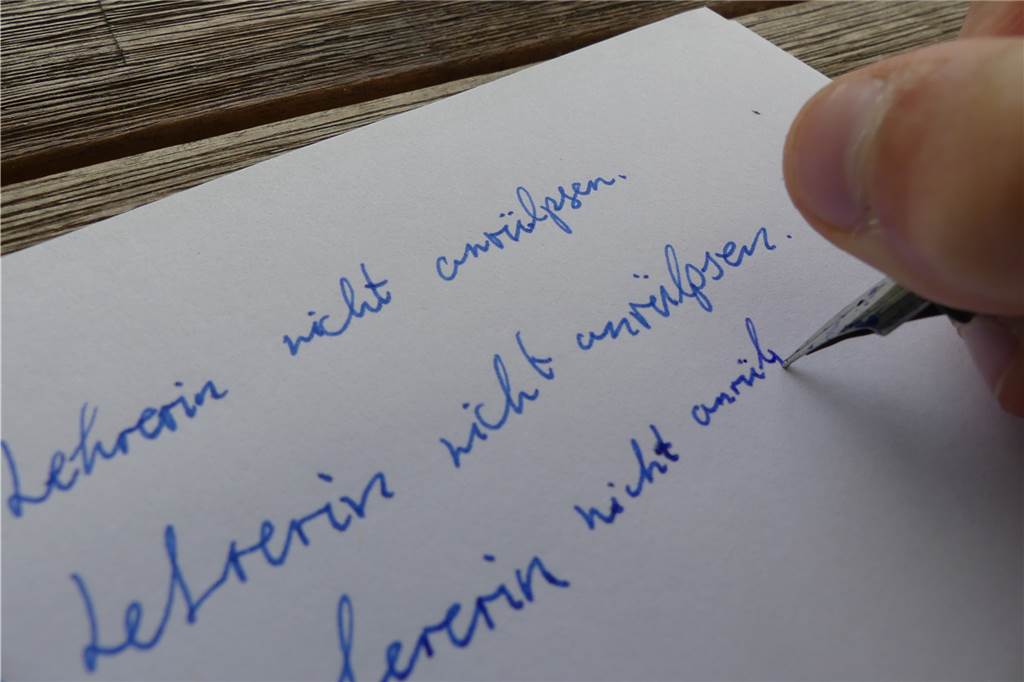 Lehrerin nicht anrülpsen.
Lehrerin nicht anrülpsen.
hrerin nicht anrül